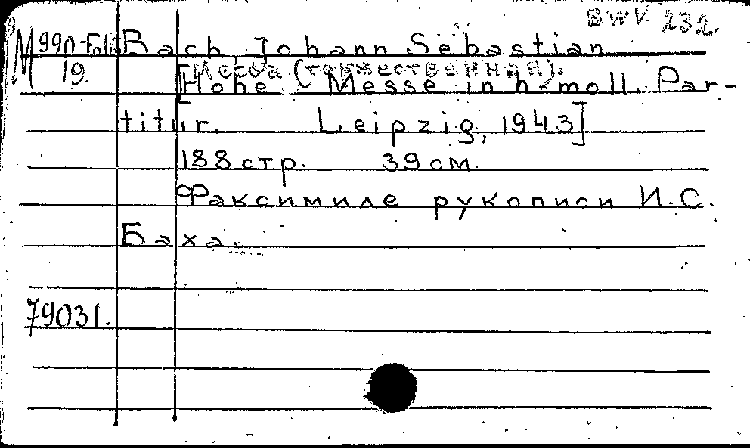 BWV 232.
М 990-Fol. Bach, Johann Sebastian
19. Месса (торжественная).
[Hohe Messe in h-moll. Par-
titur. Leipzig, 1943]
188 стр. 39 см.
Факсимиле рукописи И.С.
Баха.
79031.